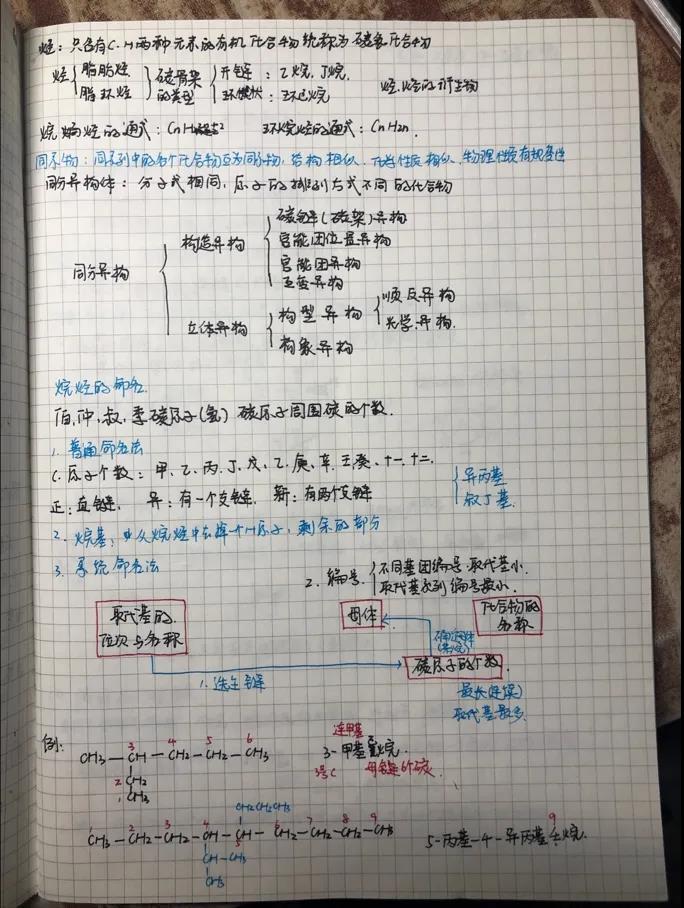 烃：只含有C.H两种元素的有机化合物统称为碳氢化合物
烃 脂肪烃 脂环烃 碳骨架的类型 开链：乙烷，丁烷， 环状：环己烷 烃.烃的衍生物
烷烃的通式：CnH2n+2 环烷烃的通式：CnH2n.
同系物：同系列中的各个化合物互为同系物，结构相似、化学性质相似、物理性质有规律
同分异构体：分子式相同，原子的排列方式不同的化合物
同分异构
构造异构
碳链(碳架)异构
官能团位置异构
官能团异构
互变异构
立体异构
构型异构
顺反异构
光学异构.
构象异构
烷烃的命名.
伯,仲,叔,季碳原子(氢) 碳原子周围碳的个数.
1. 普通命名法
C.原子个数：甲、乙、丙、丁、戊、己、庚、辛、壬、癸、十一、十二.
正：直链， 异：有一个支链， 新：有两个支链
异丙基
叔丁基.
2. 烷基：从烷烃中去掉一个H原子，剩余的部分
3. 系统命名法
2. 编号. 不同基团编号.取代基小.
取代基系列编号最小.
取代基的位次与名称
母体
化合物的名称
确定母体
1. 选主链
碳原子的个数.
最长(连续)
取代基最多.
例：
CH3—CH—CH2—CH2—CH3
3 4 5 6
2 CH2
1 CH3
连甲基
3-甲基己烷.
3号C 母链6个碳.
CH2CH2CH3
CH3—CH2—CH2—CH—CH—CH2—CH2—CH2—CH3
1 2 3 4 5 6 7 8 9
CH—CH3
CH3
5-丙基-4-异丙基壬烷.
9